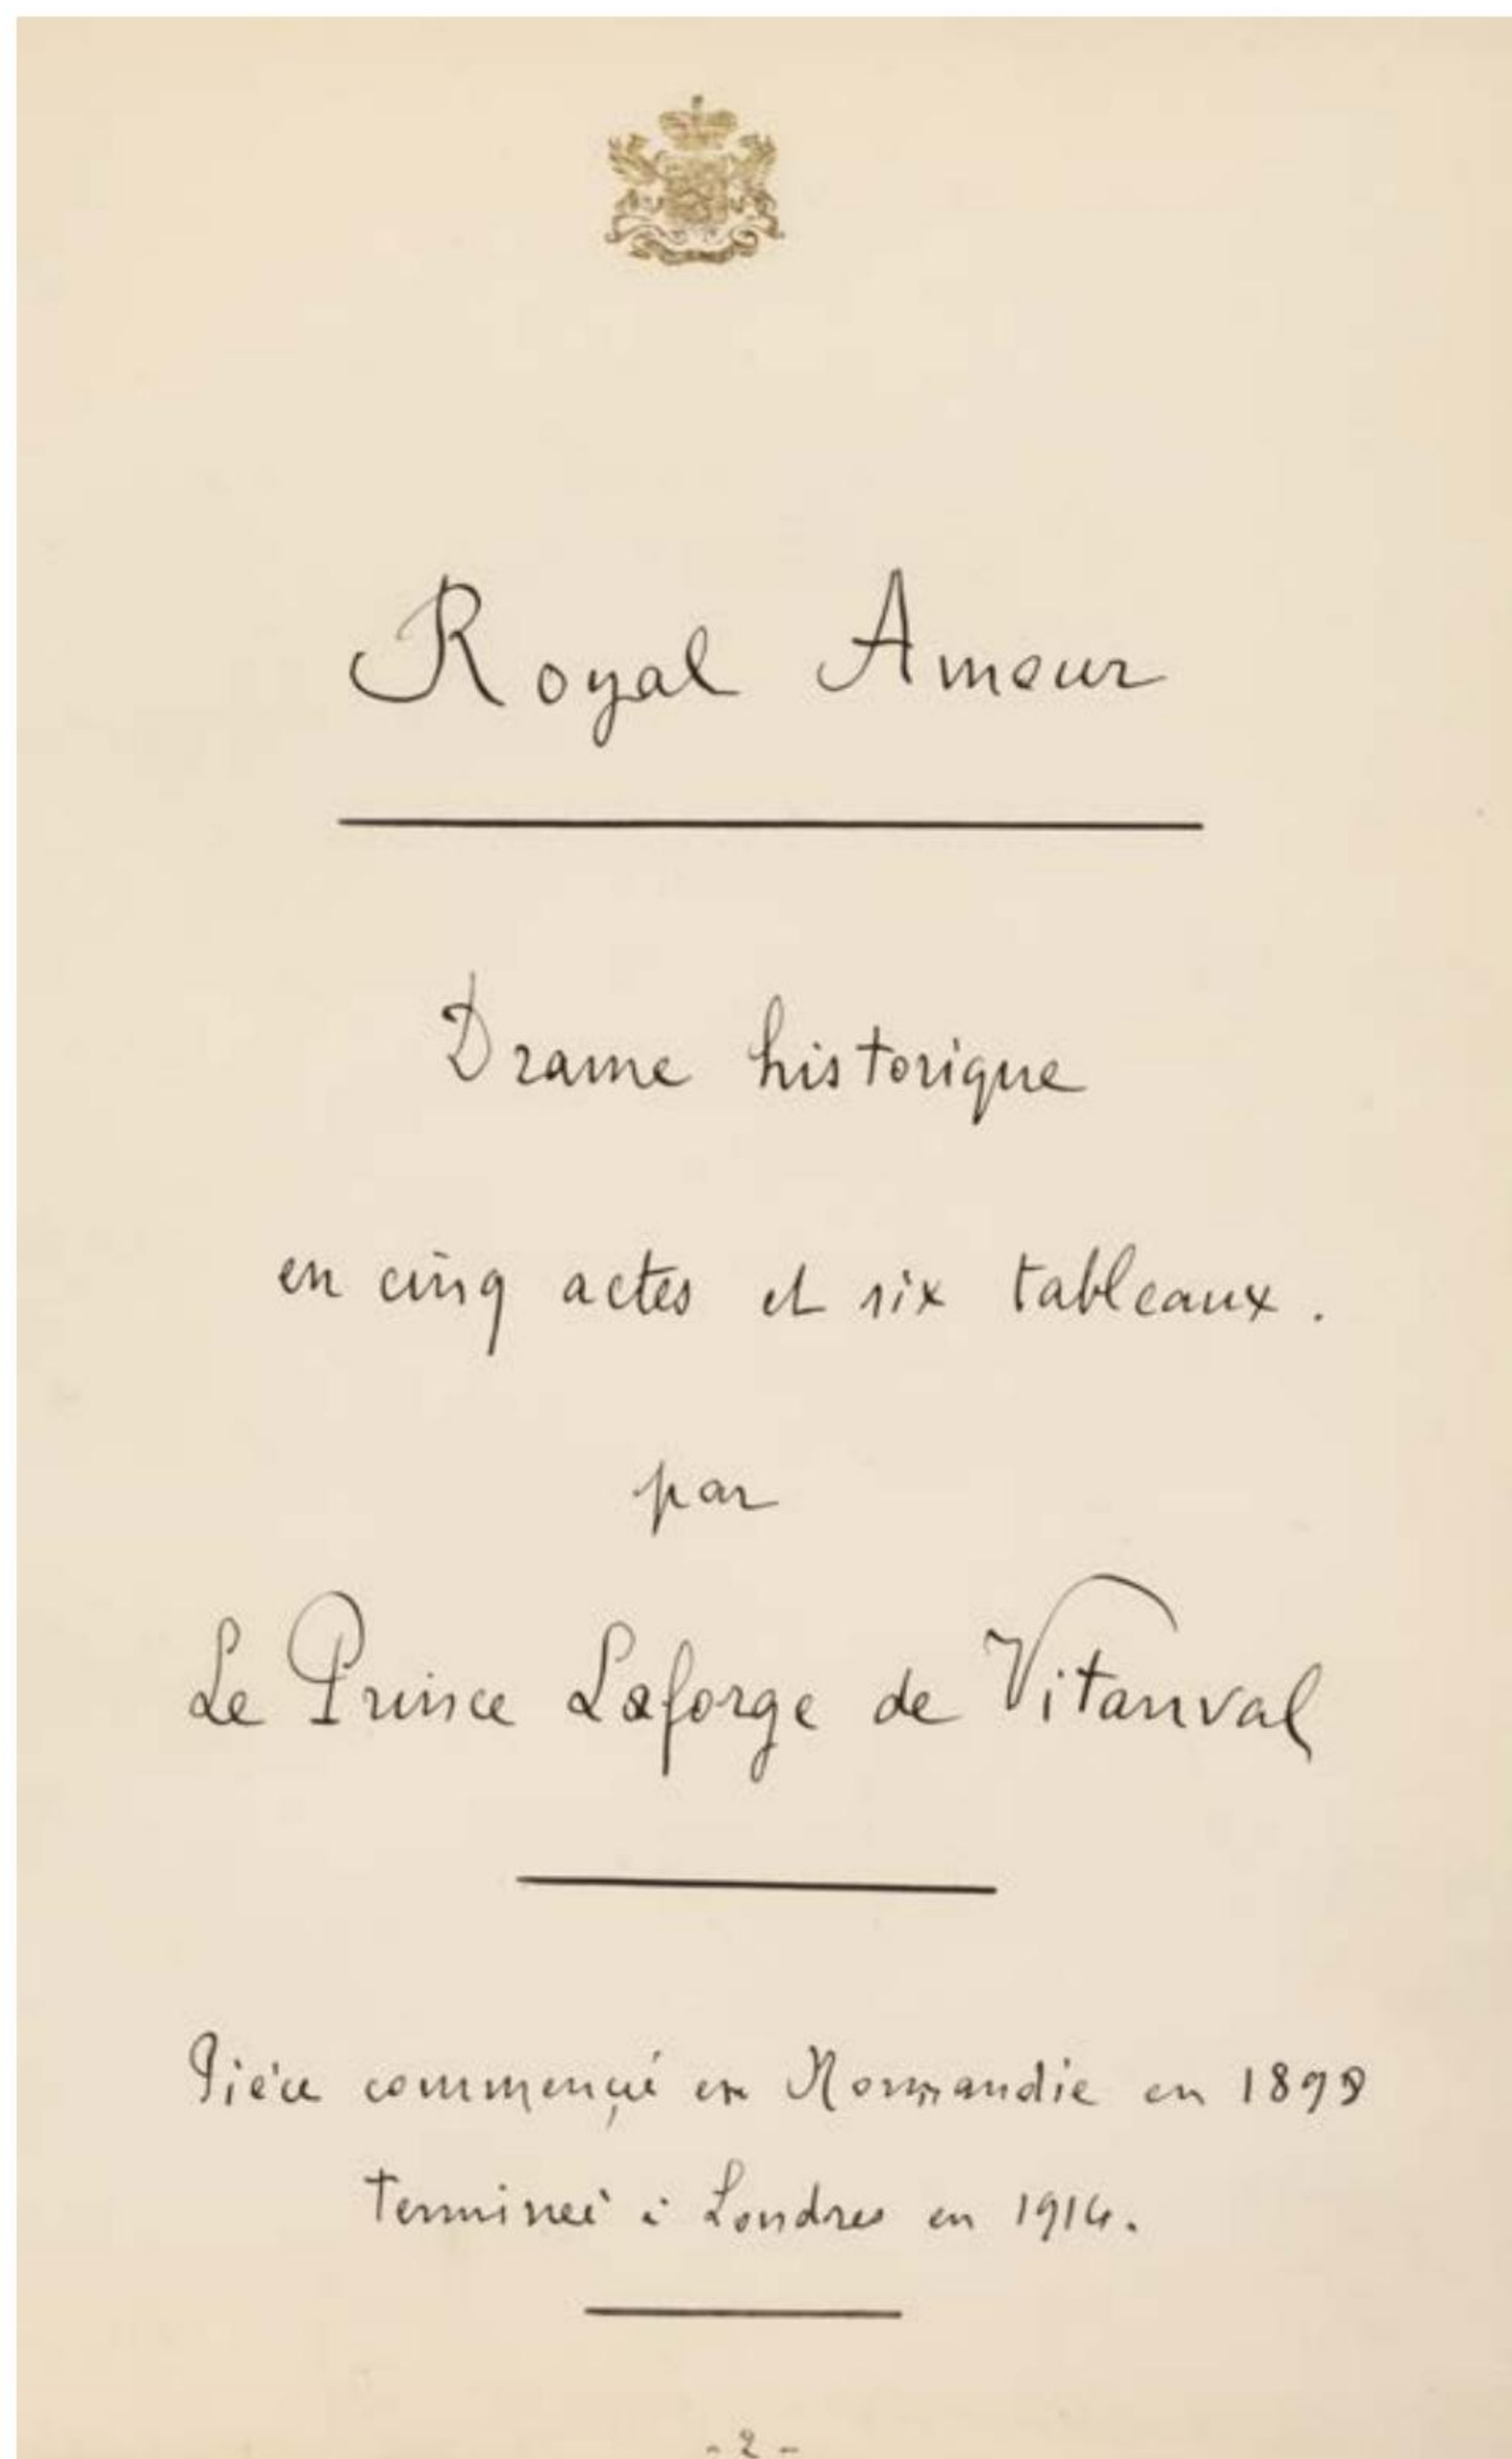 Royal Amour
Drame historique
en cinq actes et six tableaux.
par
Le Prince Laforge de Vitanval
Pièce commencé en Normandie en 1898
Terminée à Londres en 1914.
- 2 -